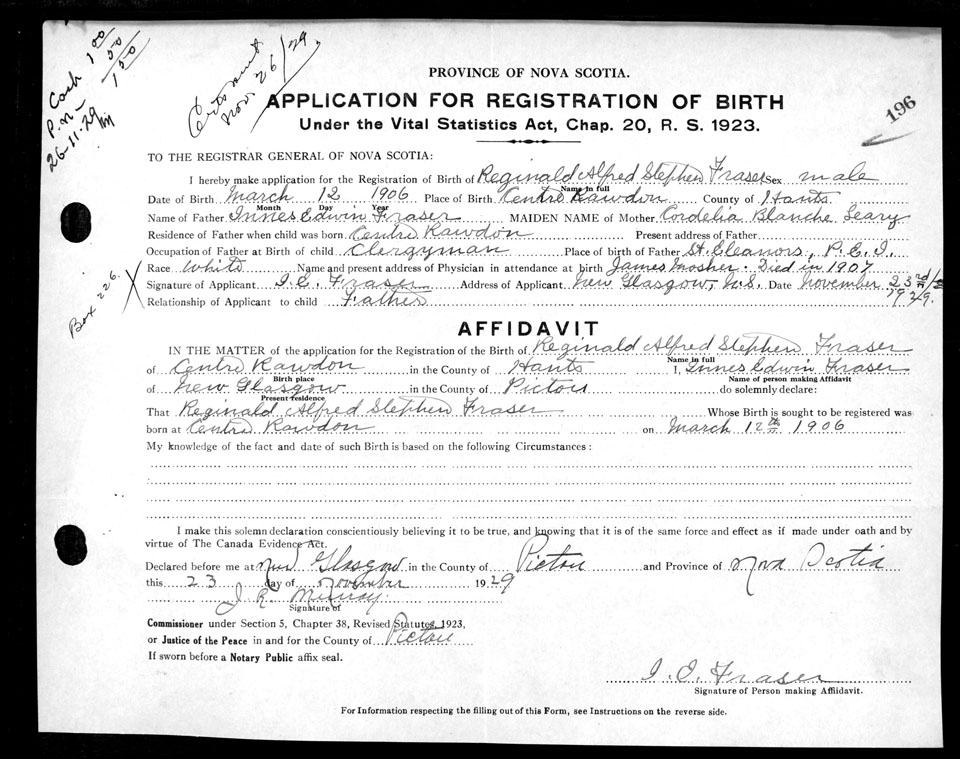 P.N. Cash 1 00
50
1 50
26-11-29
Nov. 26/29.
196
PROVINCE OF NOVA SCOTIA.
APPLICATION FOR REGISTRATION OF BIRTH
Under the Vital Statistics Act, Chap. 20, R. S. 1923.
TO THE REGISTRAR GENERAL OF NOVA SCOTIA:
I hereby make application for the Registration of Birth of Reginald Alfred Stephen Fraser Sex male
Name in full
Date of Birth March 12 1906 Place of Birth Centre Rawdon County of Hants
Month Day Year
Name of Father Innes Edwin Fraser MAIDEN NAME of Mother Cordelia Blanche Seary
Residence of Father when child was born Centre Rawdon Present address of Father
Occupation of Father at Birth of child Clergyman Place of birth of Father St. Eleanors, P.E.I.
Race White Name and present address of Physician in attendance at birth James Mosher. Died in 1907
Signature of Applicant I. E. Fraser Address of Applicant New Glasgow, N.S. Date November 23rd 1929.
Relationship of Applicant to child Father
Box 226.
AFFIDAVIT
IN THE MATTER of the application for the Registration of the Birth of Reginald Alfred Stephen Fraser
Name in full
of Centre Rawdon in the County of Hants I, Innes Edwin Fraser
Birth place Name of person making Affidavit
of New Glasgow in the County of Pictou do solemnly declare:
Present residence
That Reginald Alfred Stephen Fraser Whose Birth is sought to be registered was
born at Centre Rawdon on March 12th 1906
My knowledge of the fact and date of such Birth is based on the following Circumstances:
I make this solemn declaration conscientiously believing it to be true, and knowing that it is of the same force and effect as if made under oath and by
virtue of The Canada Evidence Act.
Declared before me at New Glasgow in the County of Pictou and Province of Nova Scotia
this 23 day of November 1929
J. R. Murray.
Signature of
Commissioner under Section 5, Chapter 38, Revised Statutes, 1923,
or Justice of the Peace in and for the County of Pictou
If sworn before a Notary Public affix seal.
I. E. Fraser
Signature of Person making Affidavit.
For Information respecting the filling out of this Form, see Instructions on the reverse side.